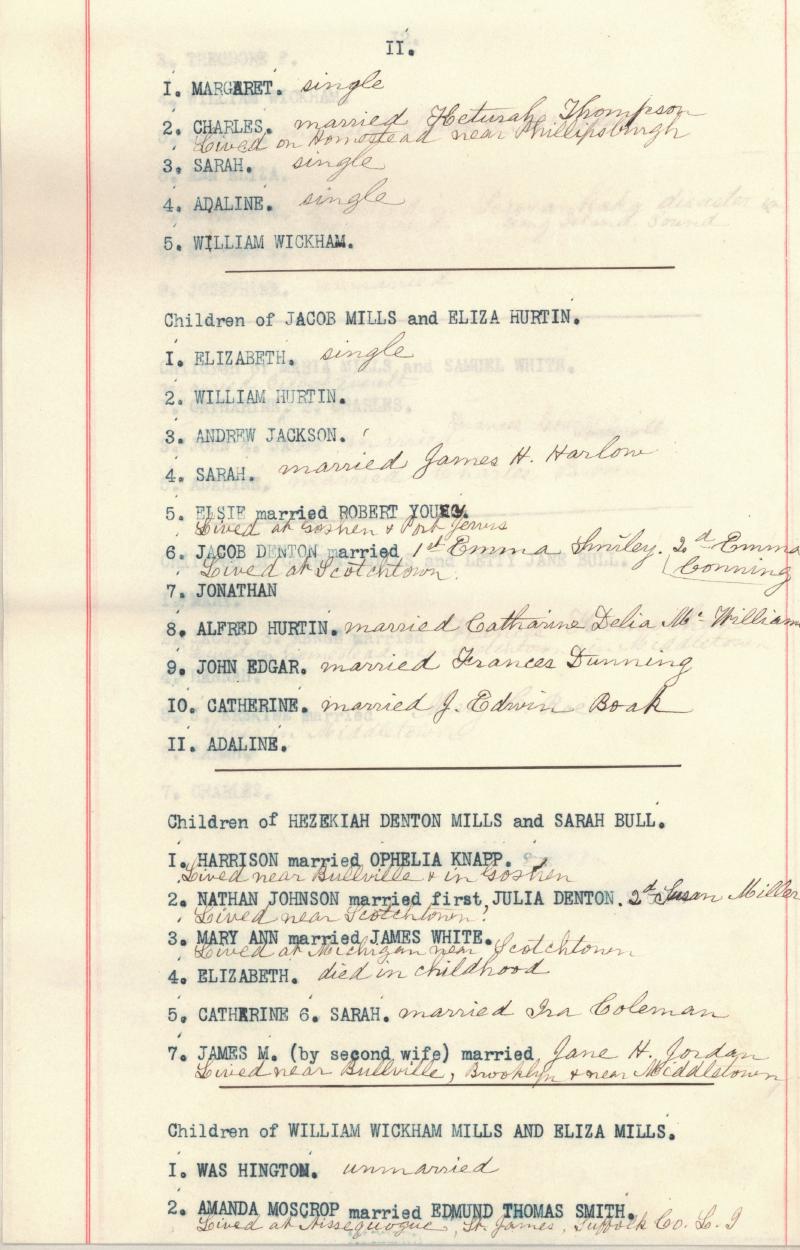 II.
I. MARGARET. single
2. CHARLES. married Keturah Thompson
Lived on Homestead near Phillipsburgh
3. SARAH. single
4. ADALINE. single
5. WILLIAM WICKHAM.
Children of JACOB MILLS and ELIZA HURTIN.
I. ELIZABETH. single
2. WILLIAM HURTIN.
3. ANDREW JACKSON.
4. SARAH. married James H. Harlow
5. ELSIE married ROBERT YOUNG.
Lived at Goshen & Port Jervis
6. JACOB DENTON married 1st Emma Smiley. 2d Emma
Lived at Scotchtown. Conning
7. JONATHAN
8. ALFRED HURTIN. married Catharine Delia Mc William
9. JOHN EDGAR. married Frances Dunning
IO. CATHERINE. married J. Edwin Boak
II. ADALINE.
Children of HEZEKIAH DENTON MILLS and SARAH BULL.
I. HARRISON married OPHELIA KNAPP.
Lived near Bullville & in Goshen
2. NATHAN JOHNSON married first, JULIA DENTON. 2d Susan Miller
Lived near Scotchtown.
3. MARY ANN married JAMES WHITE.
Lived at Michigan near Scotchtown
4. ELIZABETH. died in childhood
5. CATHERINE 6. SARAH. married Ira Coleman
7. JAMES M. (by second wife) married Jane H. Jordan
Lived near Bullville, Brooklyn & near Middletown
Children of WILLIAM WICKHAM MILLS AND ELIZA MILLS.
I. WAS HINGTOM. unmarried
2. AMANDA MOSCROP married EDMUND THOMAS SMITH.
Lived at Nissequogue, St. James, Suffolk Co. L. I